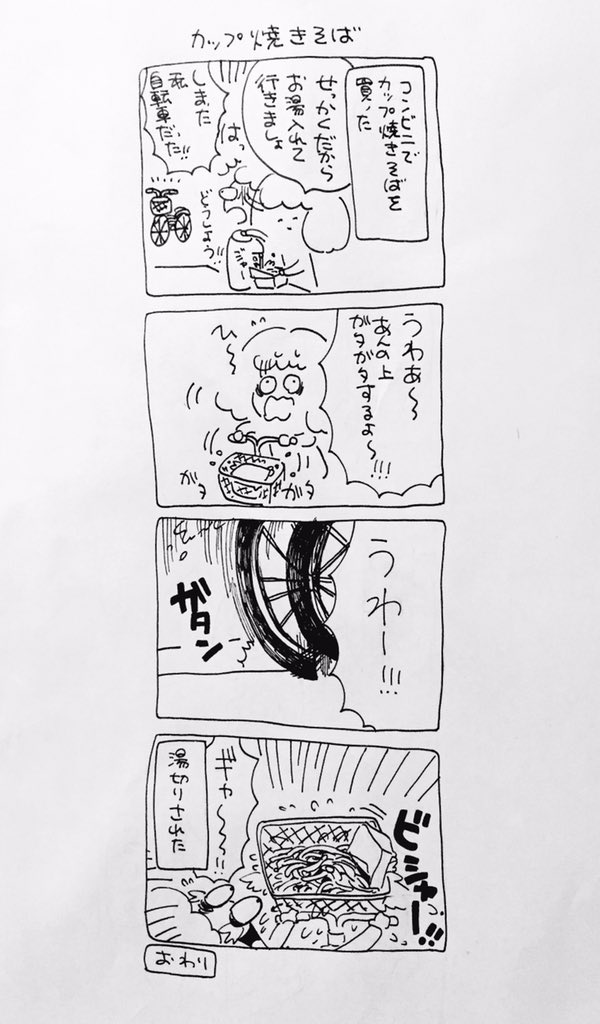 カップ焼きそば
コンビニで
カップ焼きそばを
買った
せっかくだから
お湯入れて
行きましょ
はっ
しまた
私
自転車だった!!
どうしよう!!
ジャー
うわぁ〜〜
あんの上
ガタガタするよ〜!!!
ひ〜
ガタ
ガタ
うわー!!!
ガタン
ビシャー!!
ギャー〜〜!!
湯切りされた
おわり